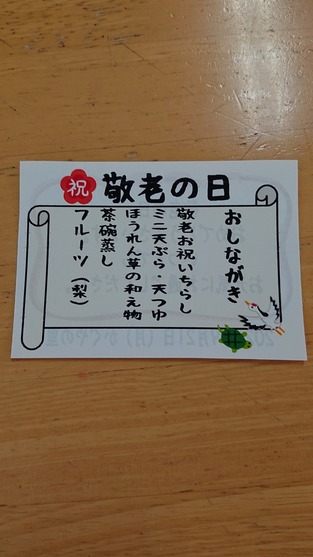 祝 敬老の日
おしながき
敬老お祝いちらし
ミニ天ぷら・天つゆ
ほうれん草の和え物
茶碗蒸し
フルーツ（梨）